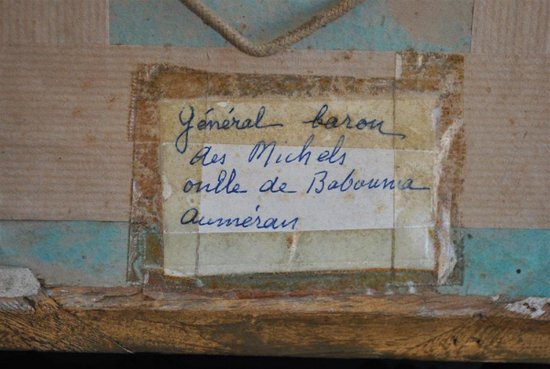 Général baron
des Michels
oncle de Babouma
Auméran